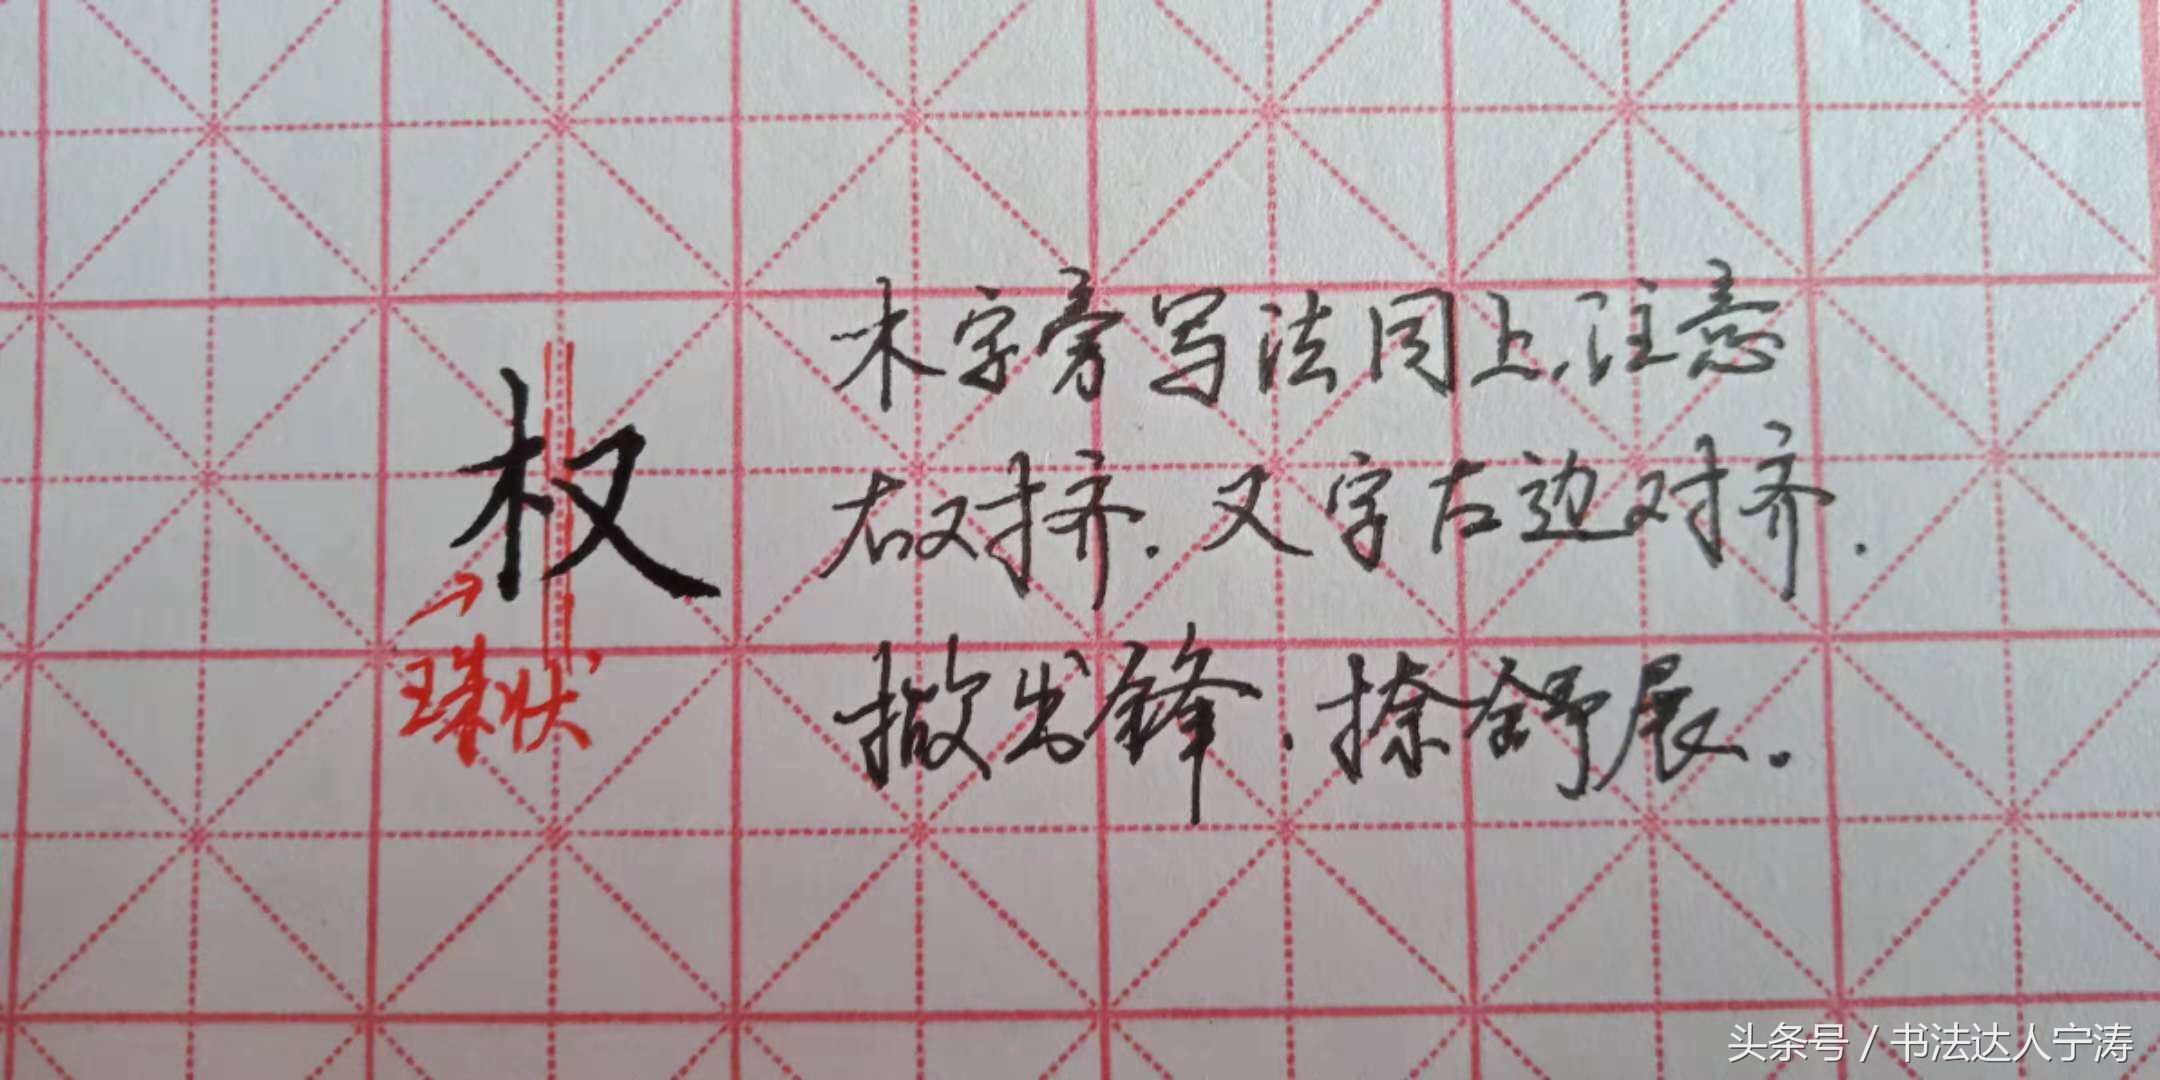 权
珠状
木字旁写法同上,注意
右对齐.又字左边对齐.
撇出锋.捺舒展。
头条号 / 书法达人宁涛